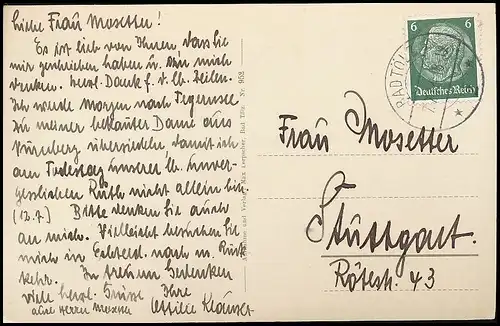 Liebe Frau Mosetter!
Es ist lieb von Ihnen, dass Sie
mir geschrieben haben u. an mich
denken. Herzl. Dank f. d. lb. Zeilen.
Ich werde morgen nach Tegernsee
zu meiner bekannten Dame aus
Nürnberg übersiedeln, damit ich
am Todestag unserer lb. unver-
gesslichen Ruth nicht allein bin.
(12.7.) Bitte denken Sie auch
an mich. Vielleicht besuchen Sie
mich in n. m. Rück-
kehr. In treuem Gedenken
viele herzl. Grüsse Ihre
Herrn Mosetter Ottilie
Verlag Max Bad Tölz. Nr. 968
6 6
Deutsches Reich
BAD TÖLZ
Frau Mosetter
Stuttgart.
Rötestr. 43